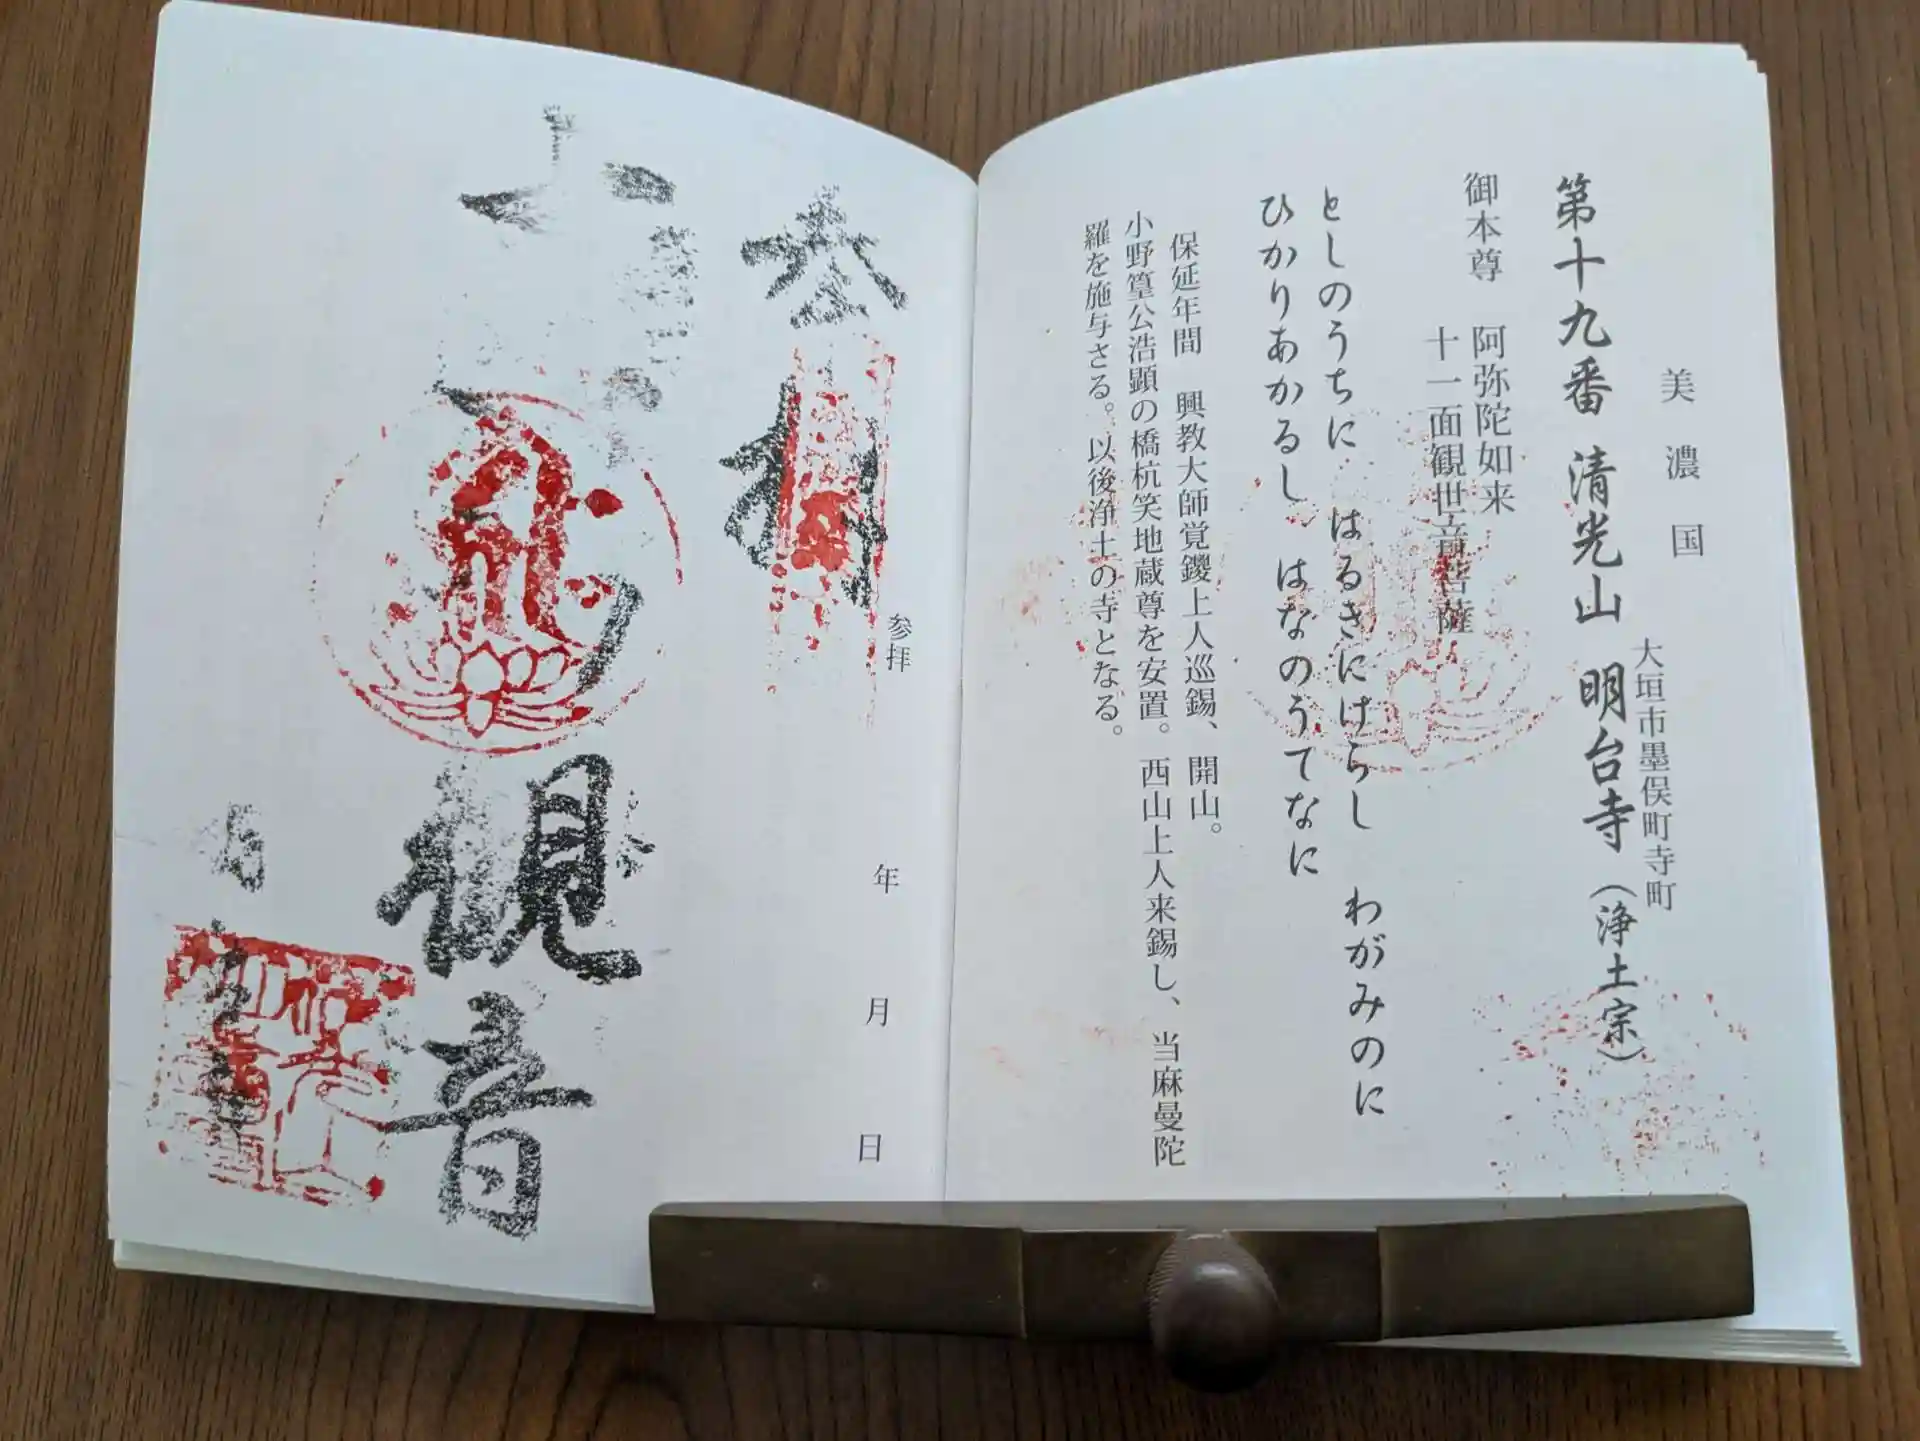 美濃国
大垣市墨俣町寺町
第十九番 清光山 明台寺（浄土宗）
御本尊 阿弥陀如来
十一面観世音菩薩
としのうちに はるきにけらし わがみのに
ひかりあかるし はなのうてなに
保延年間 興教大師覚鑁上人巡錫、開山。
小野篁公浩顕の橋杭笑地蔵尊を安置。西山上人来錫し、当麻曼陀
羅を施与さる。以後浄土の寺となる。
参拝
年 月 日
観音